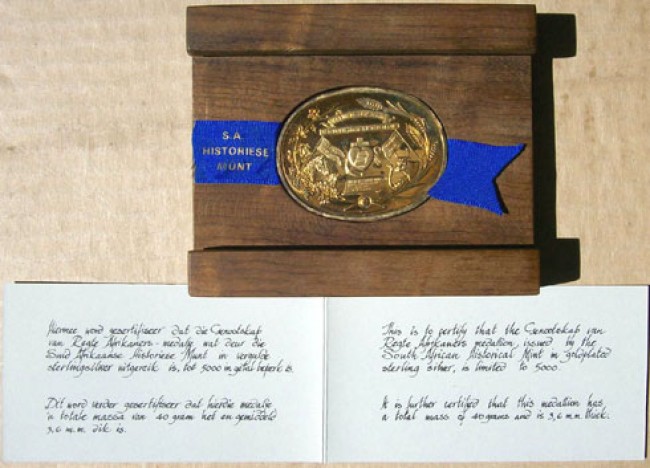 S.A.
HISTORIESE
MUNT
Hiermee word gesertifiseer dat die Genootskap
van Regte Afrikaners-medalje wat deur die
Suid Afrikaanse Historiese Munt in vergulde
sterlingsilwer uitgereik is, tot 5000 in getal beperk is.
Dit word verder gesertifiseer dat hierdie medalje
'n totale massa van 40 gram het en gemiddeld
3,6 m.m dik is.
This is to certify that the Genootskap van
Regte Afrikaners medallion, issued by the
South African Historical Mint in goldplated
sterling silver, is limited to 5000.
It is further certified that this medallion has
a total mass of 40 grams and is 3,6 m.m. thick.